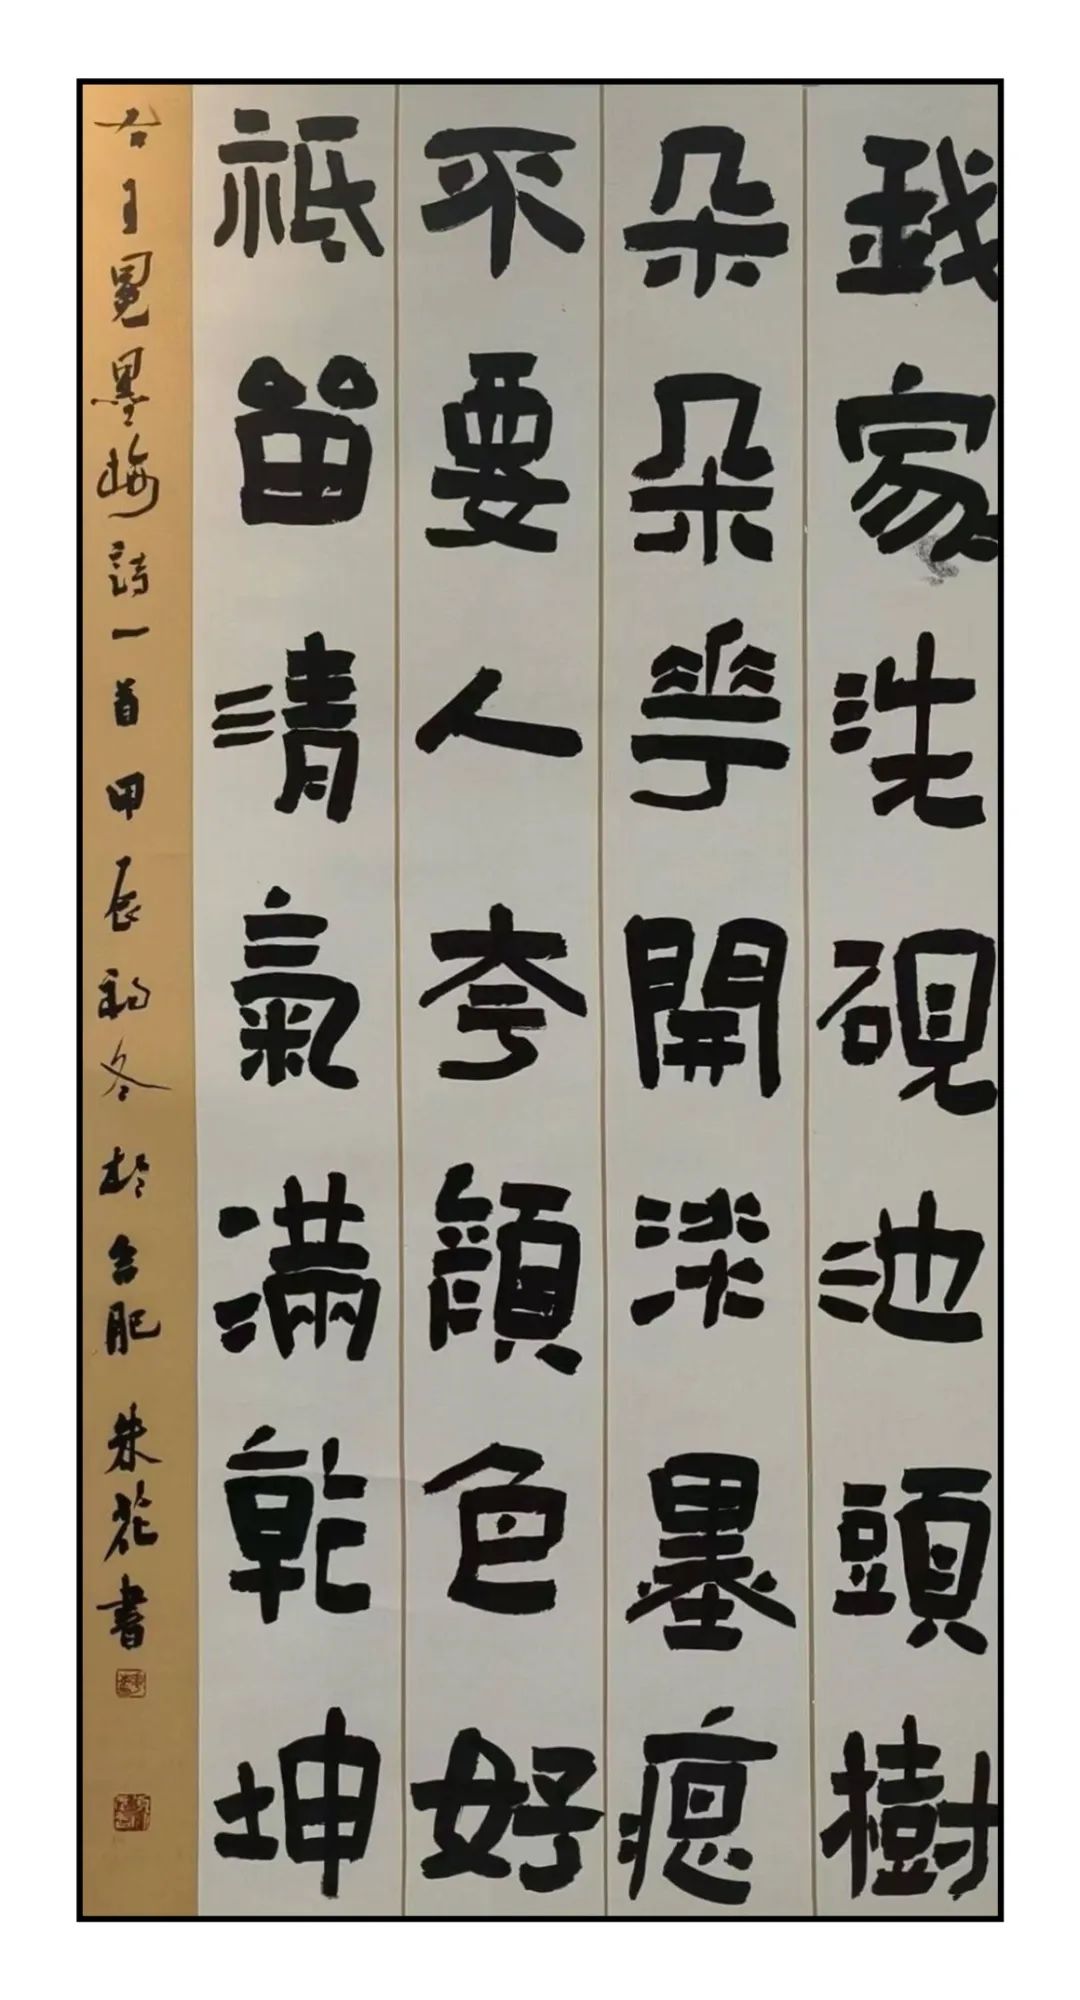 我家洗硯池頭樹
朵朵華開淡墨痕
不要人夸顔色好
祇留清氣滿乾坤
右王冕墨梅詩一首甲辰初冬於合肥朱花書